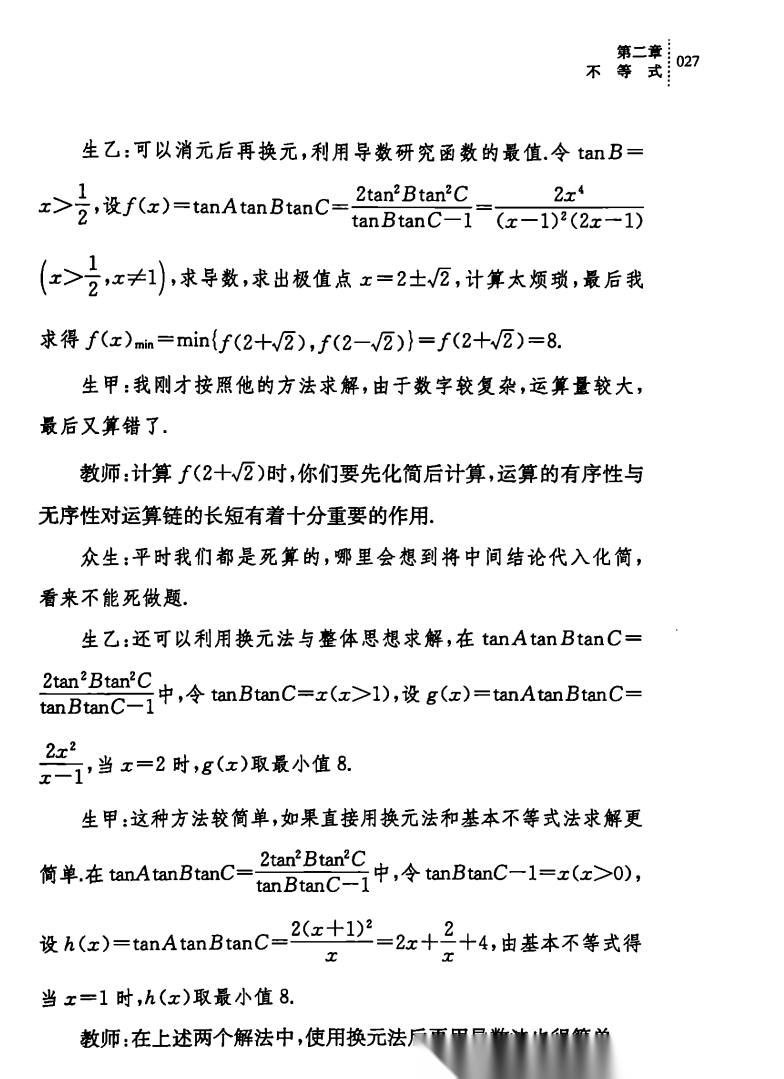 第二章
不等式
027
生乙:可以消元后再换元,利用导数研究函数的最值.令 tanB=
x>1/2,设f(x)=tanAtanBtanC=2tan²Btan²C/(tanBtanC-1)=2x⁴/((x-1)²(2x-1))
(x>1/2,x≠1),求导数,求出极值点 x=2±√2,计算太烦琐,最后我
求得 f(x)min=min{f(2+√2),f(2-√2)}=f(2+√2)=8.
生甲:我刚才按照他的方法求解,由于数字较复杂,运算量较大,
最后又算错了.
教师:计算 f(2+√2)时,你们要先化简后计算,运算的有序性与
无序性对运算链的长短有着十分重要的作用.
众生:平时我们都是死算的,哪里会想到将中间结论代入化简,
看来不能死做题.
生乙:还可以利用换元法与整体思想求解,在 tanAtanBtanC=
2tan²Btan²C/(tanBtanC-1)中,令 tanBtanC=x(x>1),设 g(x)=tanAtanBtanC=
2x²/(x-1),当 x=2 时,g(x)取最小值 8.
生甲:这种方法较简单,如果直接用换元法和基本不等式法求解更
简单.在 tanAtanBtanC=2tan²Btan²C/(tanBtanC-1)中,令 tanBtanC-1=x(x>0),
设 h(x)=tanAtanBtanC=2(x+1)²/x=2x+2/x+4,由基本不等式得
当 x=1 时,h(x)取最小值 8.
教师:在上述两个解法中,使用换元法